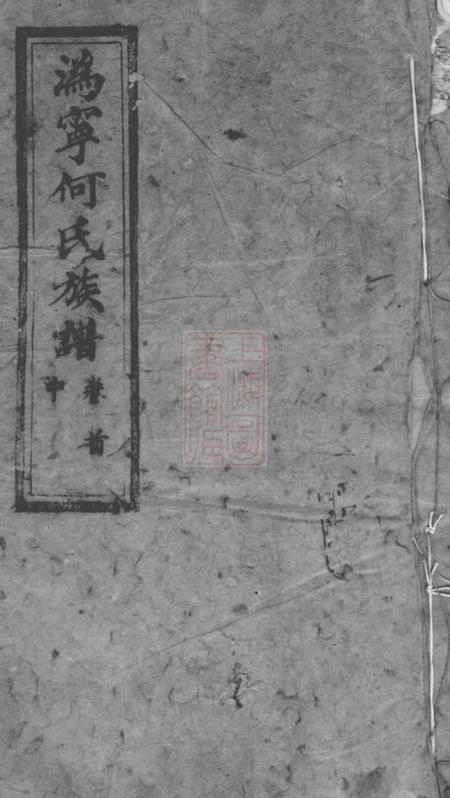 溈寧何氏族譜
卷首
中
上海圖
書館藏